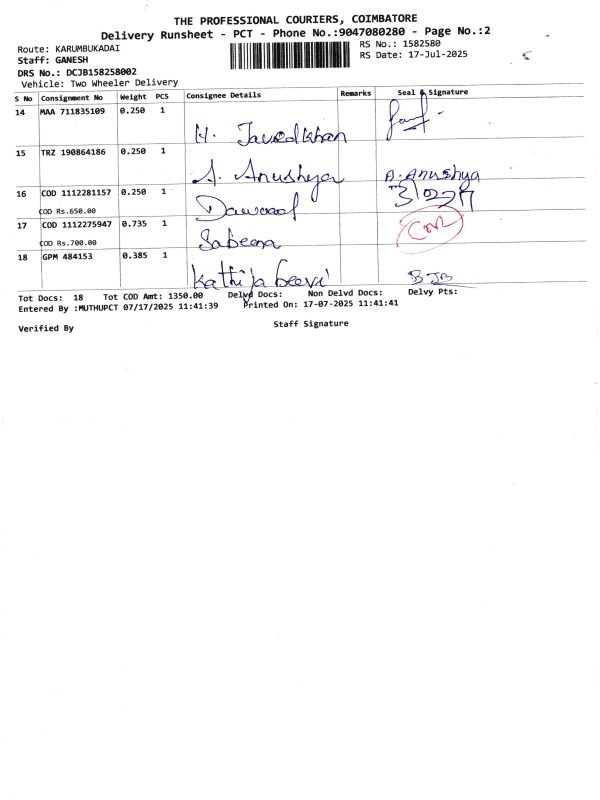 THE PROFESSIONAL COURIERS, COIMBATORE
Delivery Runsheet - PCT - Phone No.:9047080280 - Page No.:2
Route: KARUMBUKADAI RS No.: 1582580
Staff: GANESH RS Date: 17-Jul-2025
DRS No.: DCJB158258002
Vehicle: Two Wheeler Delivery
S No Consignment No Weight PCS Consignee Details Remarks Seal & Signature
14 MAA 711835109 0.250 1
H. Javedkhan
15 TRZ 190864186 0.250 1
A. Anushya A. Anushya
16 COD 1112281157 0.250 1
COD Rs.650.00 Dawood
17 COD 1112275947 0.735 1
COD Rs.700.00 Sabeena
18 GPM 484153 0.385 1
Kathija beevi BJB
Tot Docs: 18 Tot COD Amt: 1350.00 Delvd Docs: Non Delvd Docs: Delvy Pts:
Entered By :MUTHUPCT 07/17/2025 11:41:39 Printed On: 17-07-2025 11:41:41
Verified By Staff Signature